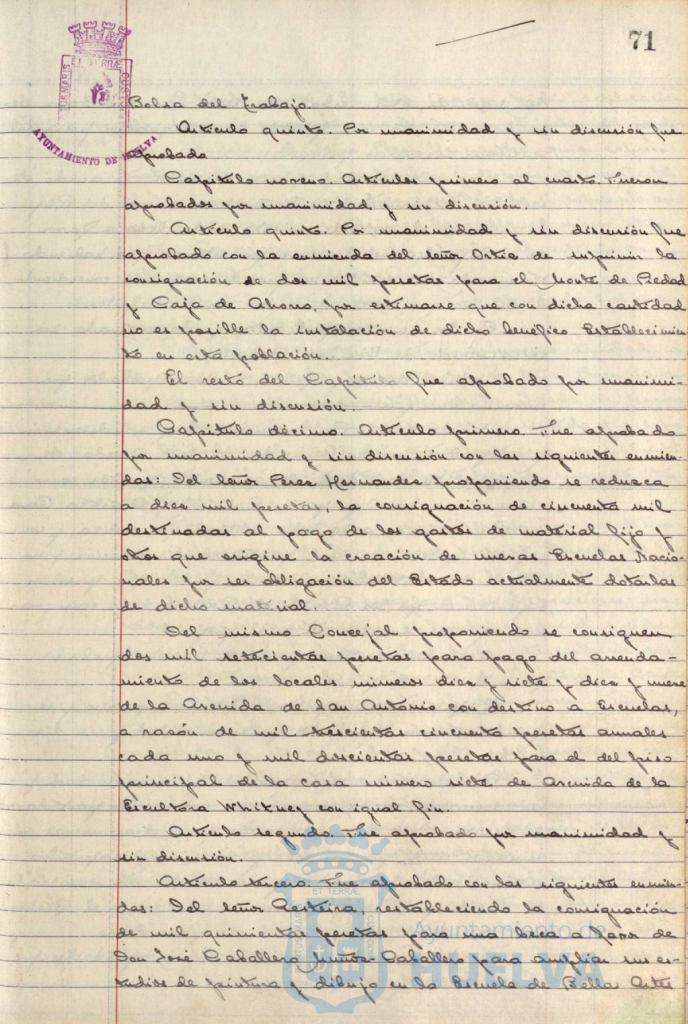 71
PORTUS MARIS ET TERRÆ CUSTODIA
AYUNTAMIENTO DE HUELVA
Bolsa del Trabajo.
Artículo quinto. Por unanimidad y sin discusión fue
aprobado
Capítulo noveno. Artículos primero al cuarto. Fueron
aprobados por unanimidad y sin discusión.
Artículo quinto. Por unanimidad y sin discusión fue
aprobado con la enmienda del señor Ortiz de suprimir la
consignación de dos mil pesetas para el Monte de Piedad
y Caja de Ahorro, por estimarse que con dicha cantidad
no es posible la instalación de dicho benéfico Establecimien-
to en esta población.
El resto del Capítulo fue aprobado por unanimi-
dad y sin discusión.
Capítulo décimo. Artículo primero. Fue aprobado
por unanimidad y sin discusión con las siguientes enmien-
das: Del señor Perez Hernandez proponiendo se reduzca
a diez mil pesetas, la consignación de cincuenta mil
destinadas al pago de los gastos de material fijo y
otros que origine la creación de nuevas Escuelas Nacio-
nales por ser obligación del Estado actualmente dotarlas
de dicho material.
Del mismo Concejal proponiendo se consignen
dos mil setecientas pesetas para pago del arrenda-
miento de los locales números diez y siete y diez y nueve
de la Avenida de San Antonio con destino a Escuelas,
a razón de mil trescientas cincuenta pesetas anuales
cada uno y mil doscientas pesetas para el del piso
principal de la casa número siete de Avenida de la
Escultora Whitney con igual fin.
Artículo segundo. Fue aprobado por unanimidad y
sin discusión.
Artículo tercero. Fue aprobado con las siguientes enmien-
das: Del señor Resteira, estableciendo la consignación
de mil quinientas pesetas para una beca a favor de
Don José Caballero Muñoz-Caballero para ampliar sus es-
tudios de pintura y dibujo en la Escuela de Bellas Artes
Ayuntamiento de
HUELVA